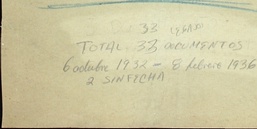 33
TOTAL 33 DOCUMENTOS
6 octubre 1932 - 8 febrero 1936
2 SIN FECHA